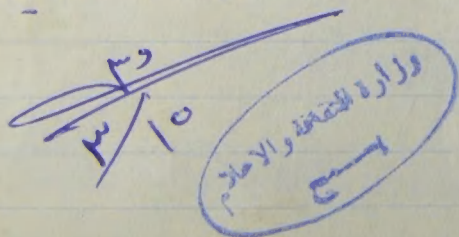 ١٥/٣
وزارة الثقافة والاعلام
يسمح